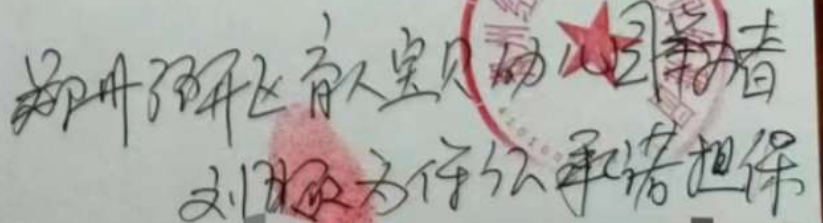 郑州经开区育人宝贝幼儿园举办者
刘为作公承诺担保